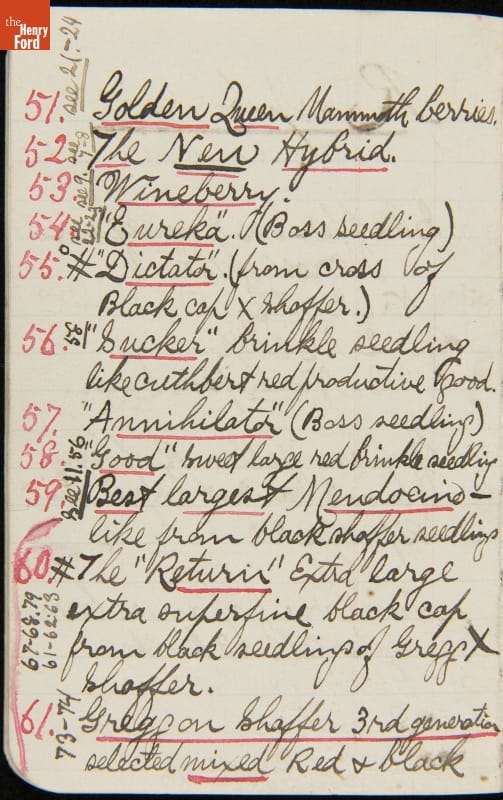 the
Henry
Ford
see 21.-24
51. Golden Queen Mammoth berries.
see 7-8
52. The New Hybrid.
see 9.
53. Wineberry.
see 22-23
54. "Eureka". (Boss seedling)
55. # "Dictator". (from cross of
Black cap X Shaffer.)
56. 58 "Sucker" brinkle seedling
like cuthbert red productive good.
57. "Annihilator" (Boss seedling)
58. "Good" sweet large red brinkle seedling
See 11.56
59. Best largest Mendocino-
like from black shaffer seedlings
60. # The "Return" Extra large
67-68.79
61-62.63
extra superfine black cap
from black seedlings of Gregg X
Shaffer.
73-74
61. Gregg on Shaffer 3rd generation
selected mixed Red & black